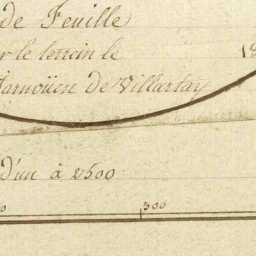 de Feuille
r le terrein le 18
Jarnoüen de Villartay
d'un à 2500
0 300